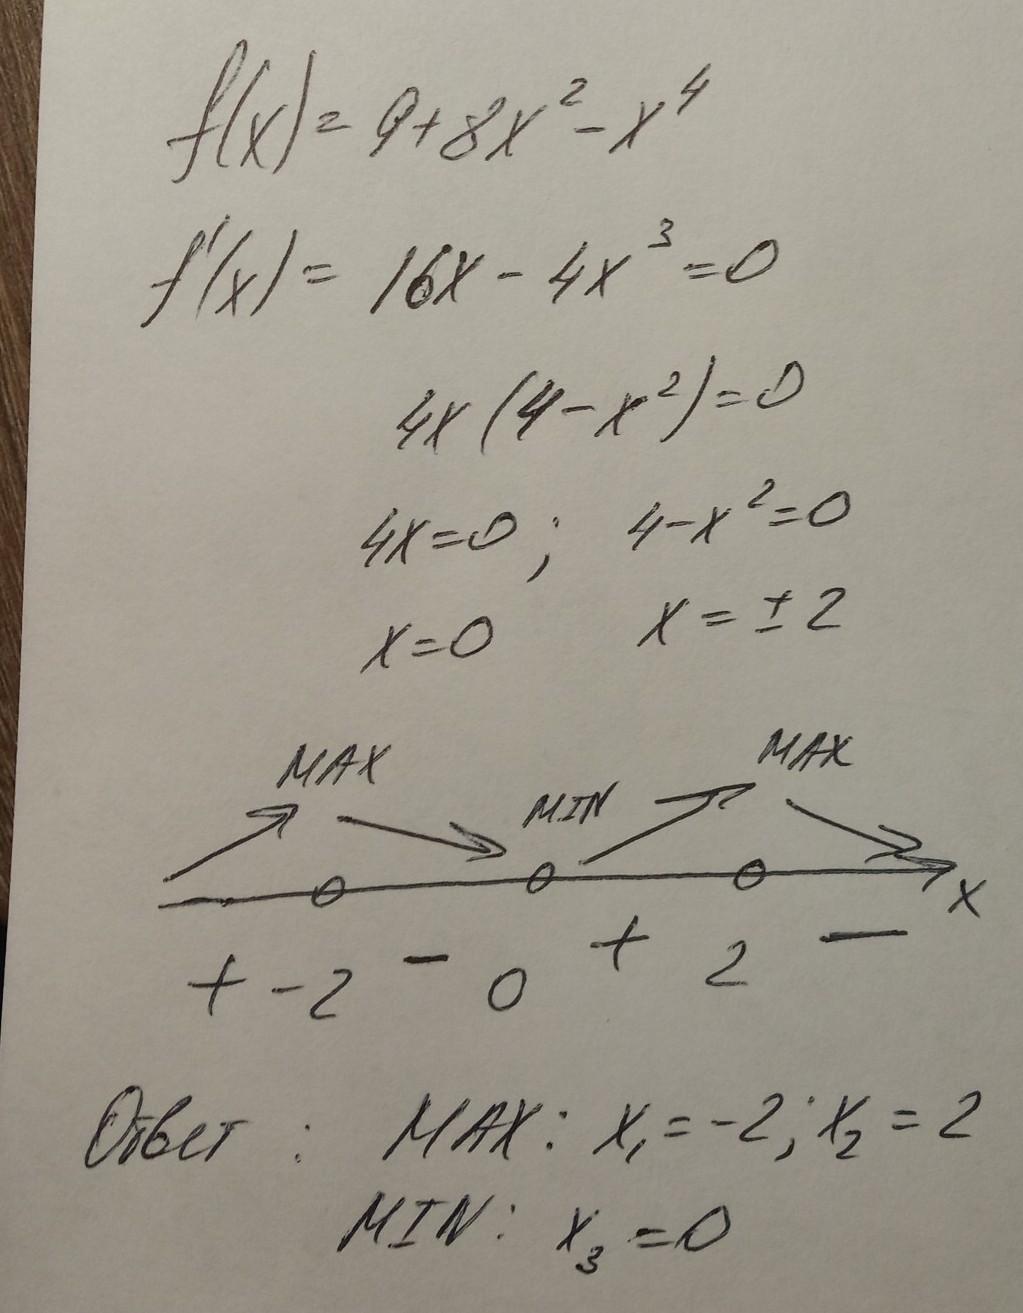 f(x) = 9+8x²-x⁴
f'(x) = 16x - 4x³ = 0
4x(4-x²)=0
4x=0; 4-x²=0
x=0 x=±2
MAX MIN MAX
x
+ -2 - 0 + 2 -
Ответ: MAX: x₁=-2; x₂=2
MIN: x₃=0